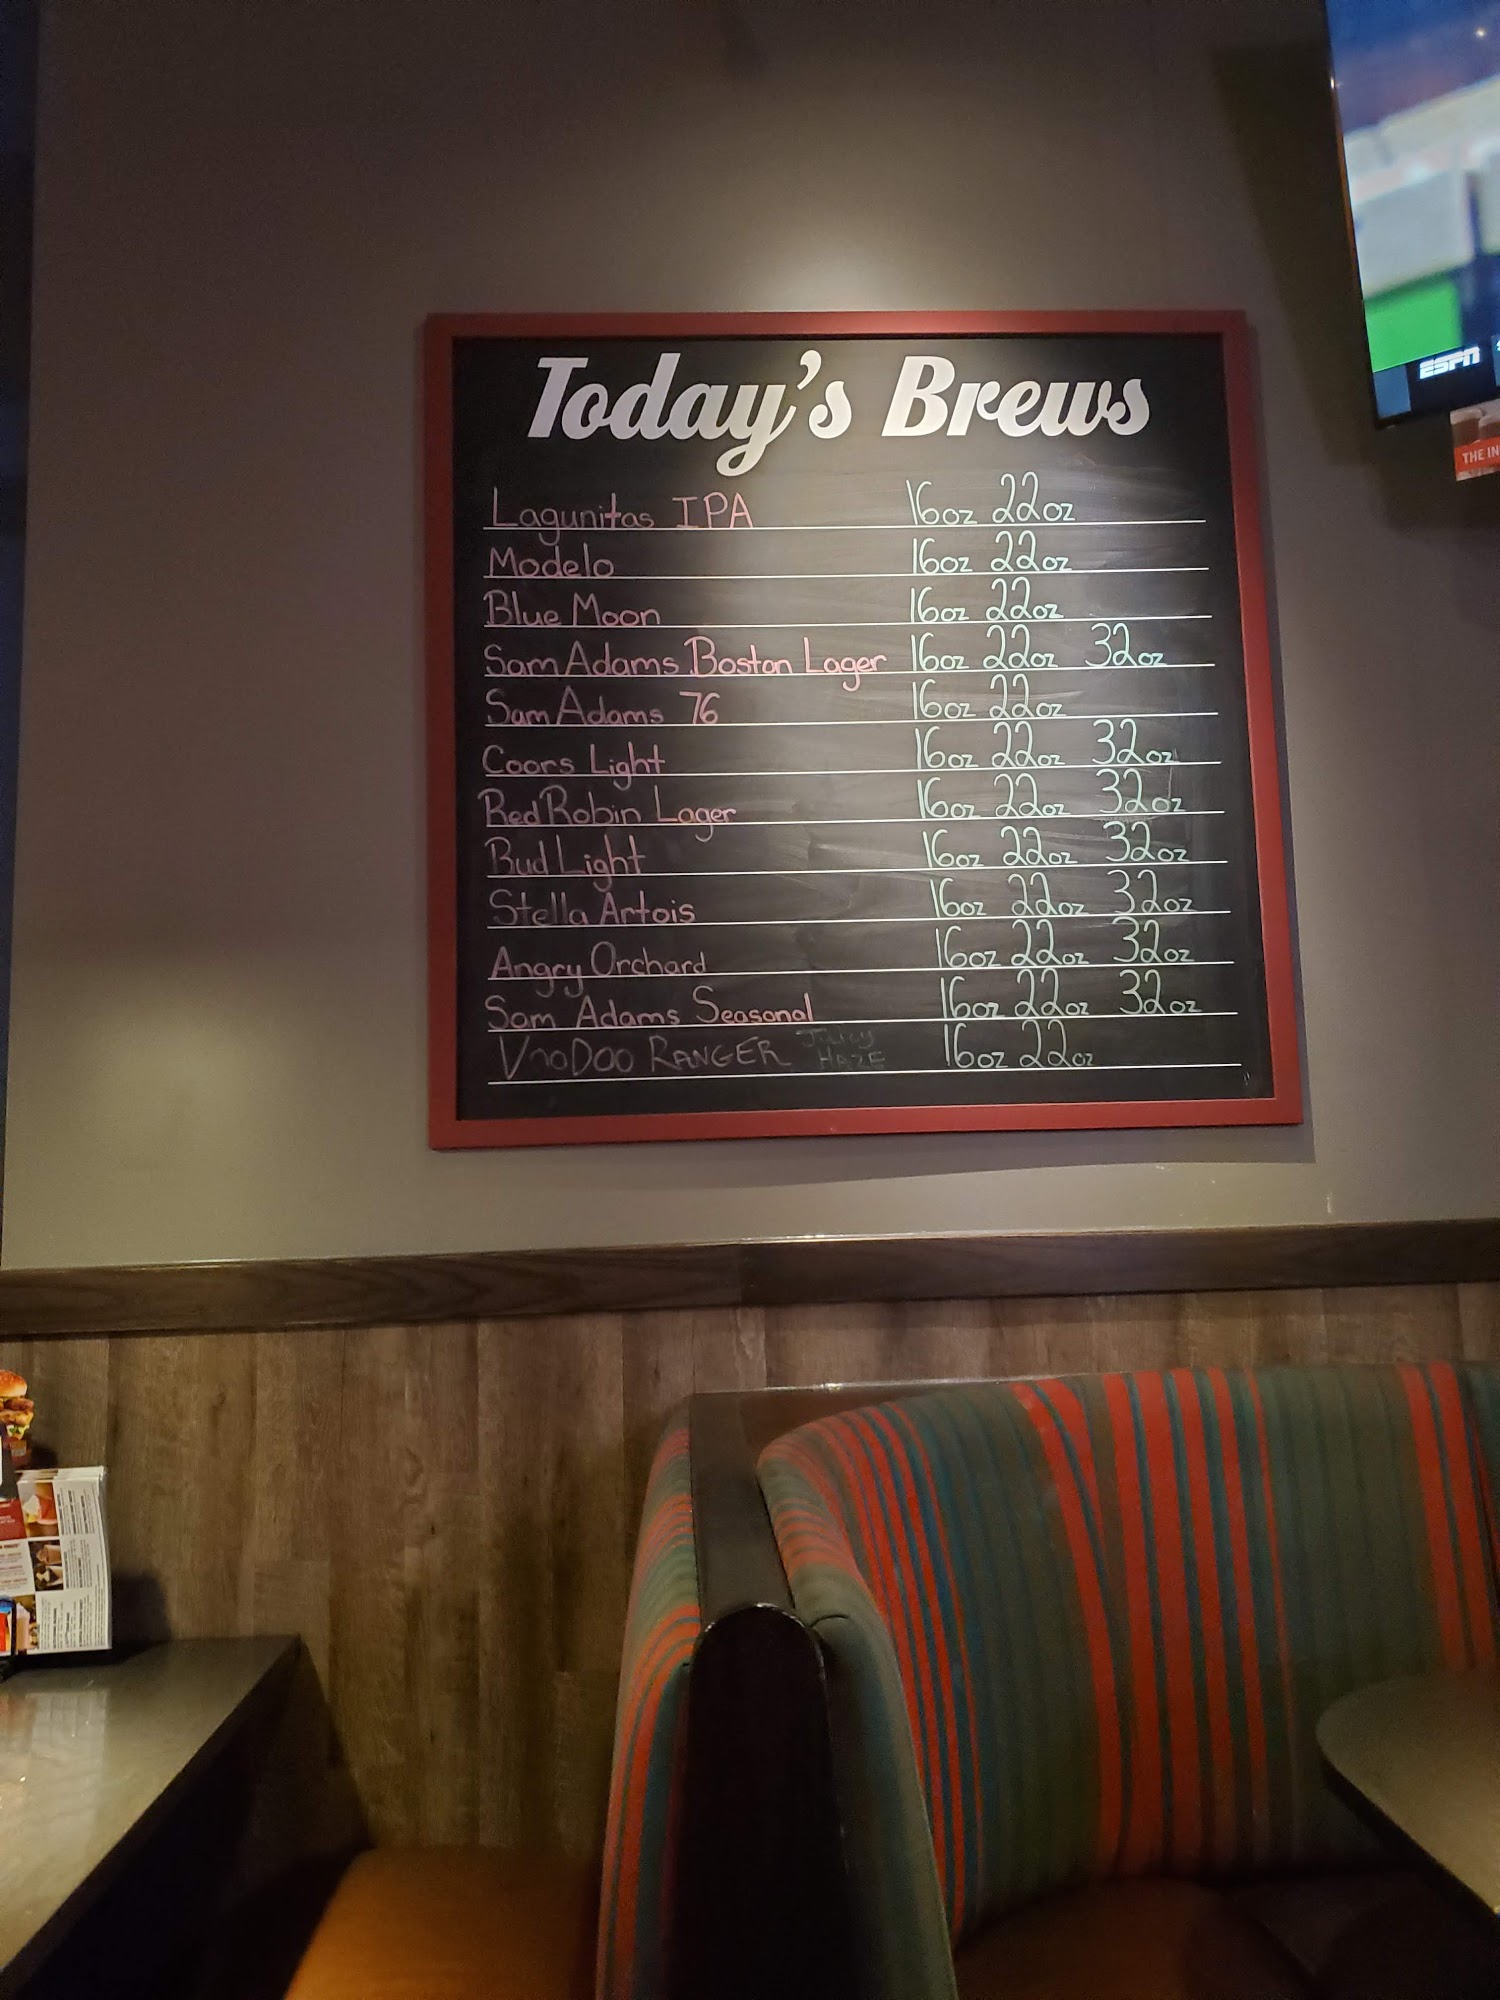 ESPN
THE IN
Today's Brews
Lagunitas IPA 16oz 22oz
Modelo 16oz 22oz
Blue Moon 16oz 22oz
Sam Adams Boston Lager 16oz 22oz 32oz
Sam Adams 76 16oz 22oz
Coors Light 16oz 22oz 32oz
Red Robin Lager 16oz 22oz 32oz
Bud Light 16oz 22oz 32oz
Stella Artois 16oz 22oz 32oz
Angry Orchard 16oz 22oz 32oz
Sam Adams Seasonal 16oz 22oz 32oz
VooDoo RANGER JUICY HAZE 16oz 22oz